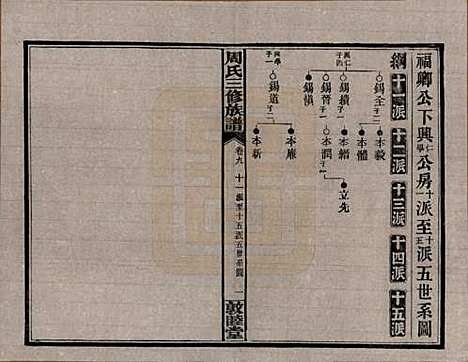 福卿公下興仁學公房十一派至十五派五世系圖
綱 十一派 十二派 十三派 十四派 十五派
興仁 子四
錫全 子二
本毅
本體
錫績 子一
本縉
錫晉 子一
本潤 子一
立先
錫楨
興學 子一
錫道 子二
本廉
本新
周氏三修族譜
卷九 十一派至十五派五世系圖 一
敦睦堂